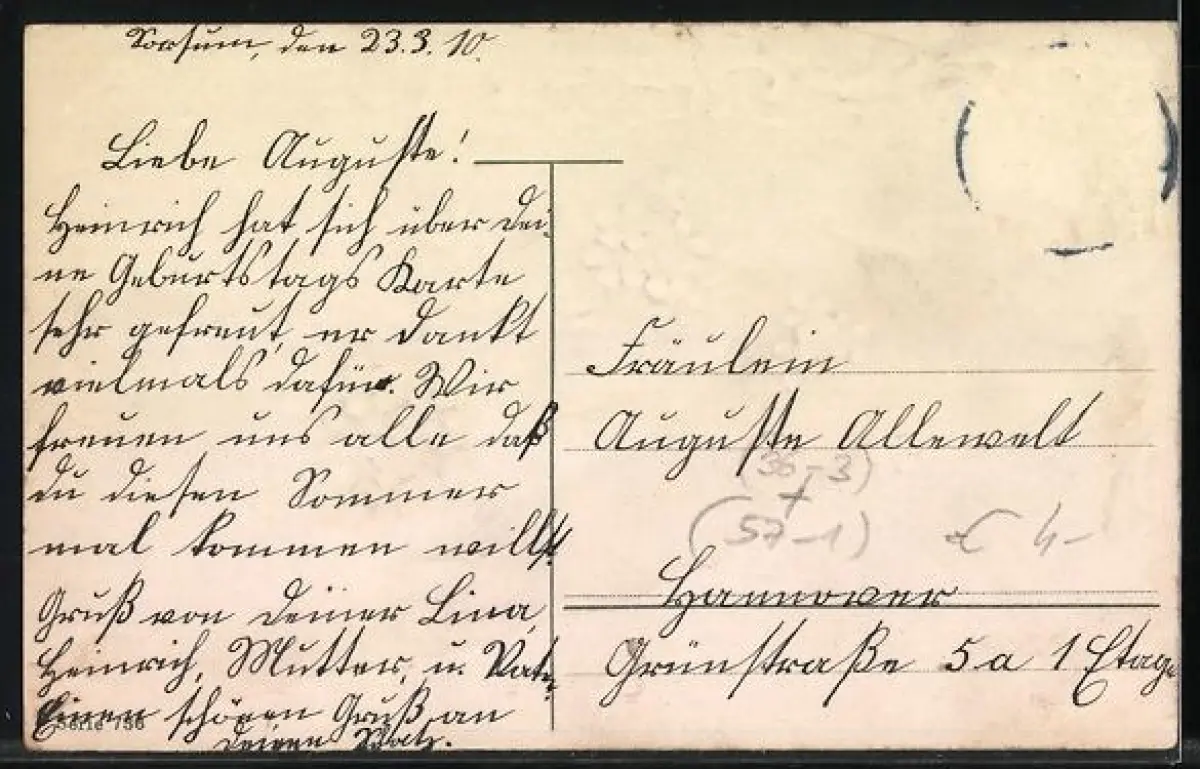 Sorsum, den 23.3.10.
Liebe Auguste!
Heinrich hat sich über dei-
ne Geburtstags Karte
sehr gefreut, er dankt
vielmals dafür. Wir
freuen uns alle daß
du diesen Sommer
mal kommen willst
Gruß von deiner Lina,
Heinrich, Mutter, u. Vater.
Einen schönen Gruß an
deinen
Serie 786
Fräulein
Auguste Allewelt
(36-3)
+
(57-1)
Hannover
Grünstraße 5a 1 Etage